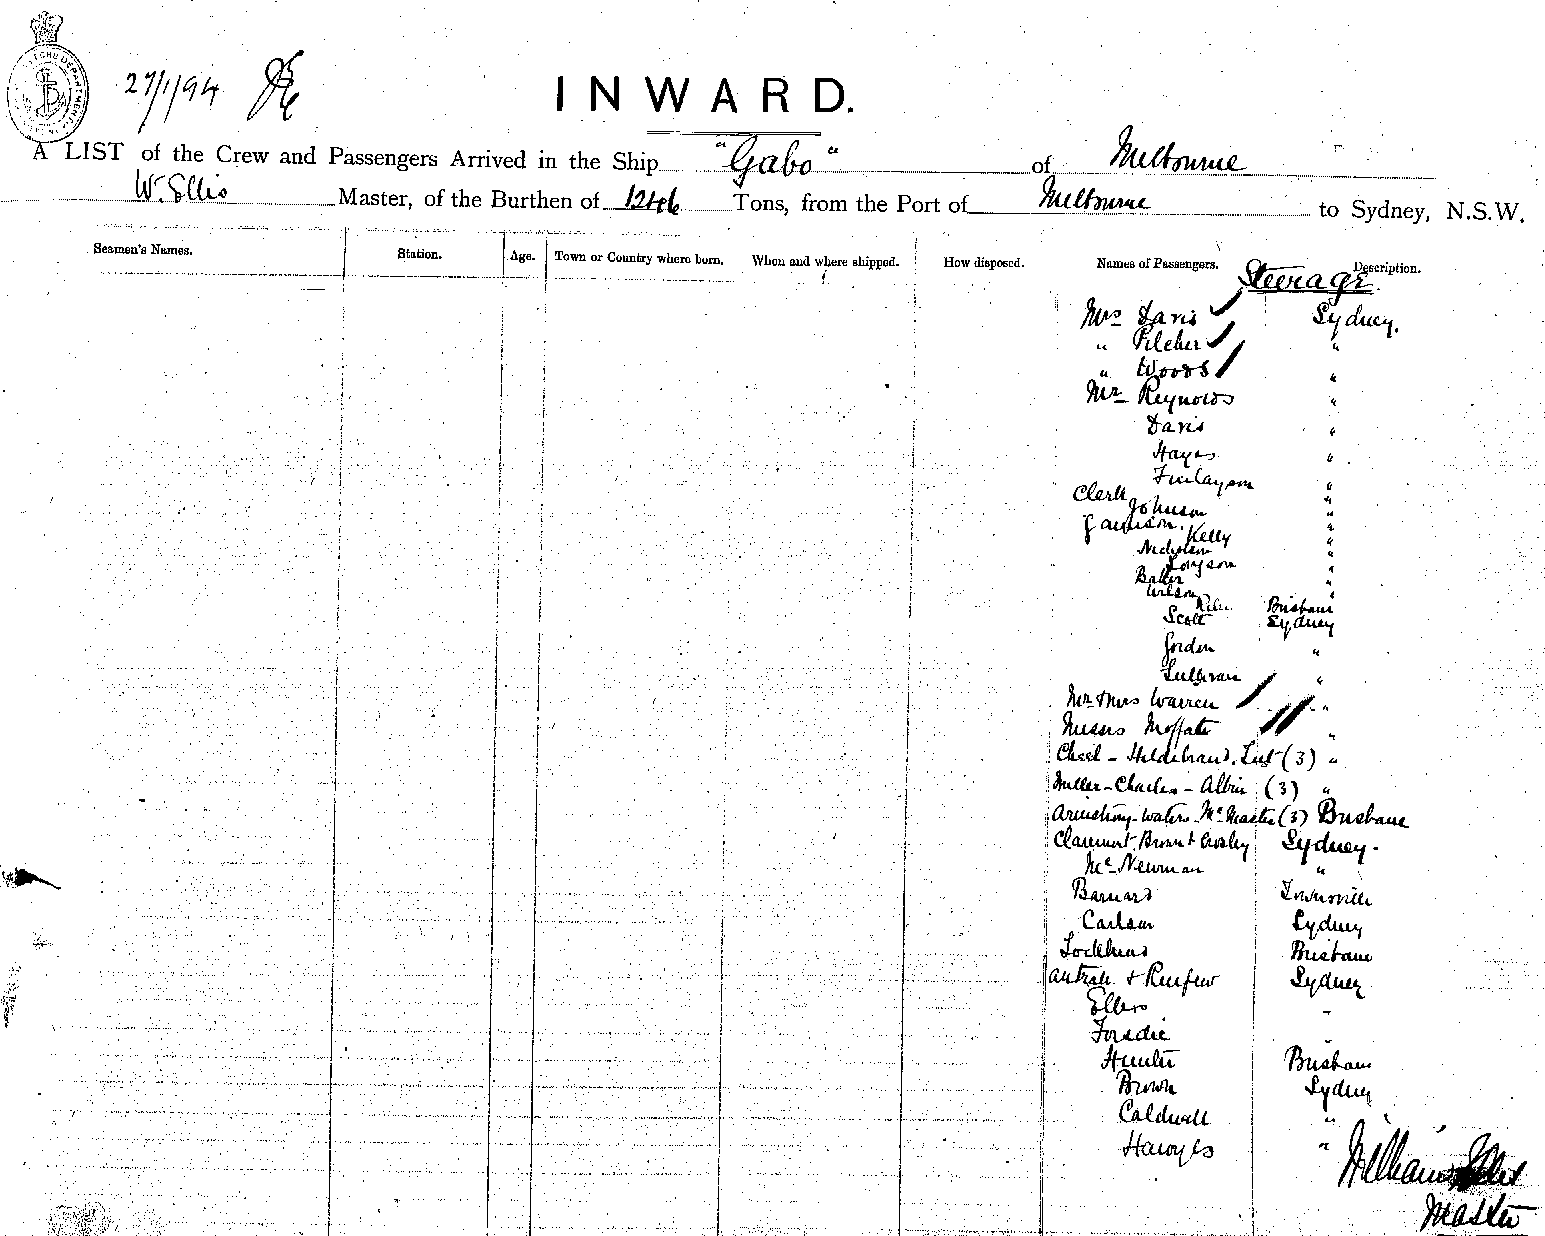 27/1/94
INWARD.
A LIST of the Crew and Passengers Arrived in the Ship "Gabo" of Melbourne
W. Ellis Master, of the Burthen of 1246 Tons, from the Port of Melbourne to Sydney, N.S.W.
Seamen's Names. Station. Age. Town or Country where born. When and where shipped. How disposed. Names of Passengers. Description.
Steerage
Mrs Davis Sydney.
" Pilcher "
" Woods "
Mr Reynolds "
Davis "
Hayes "
Finlayson "
Clark "
Johnson "
Jamison. "
Kelly "
Nicholson "
"
Baker "
Wilson "
Brisbane
Scott Sydney
Gordon "
Sullivan "
Mr & Mrs Warren "
Misses Moffatt "
Cheel - Hildebrand. (3) "
Miller - Charles - Albin (3) "
Armstrong - Waters - McMaster (3) Brisbane
Claremont, Brown & Crosley Sydney -
Mr Newman "
Barnard Townsville
Carlson Sydney
Brisbane
& Renfrew Sydney
Ellers "
Forsdie "
Hunter Brisbane
Brown Sydney
Caldwell "
Hawyes "
William Ellis
Master